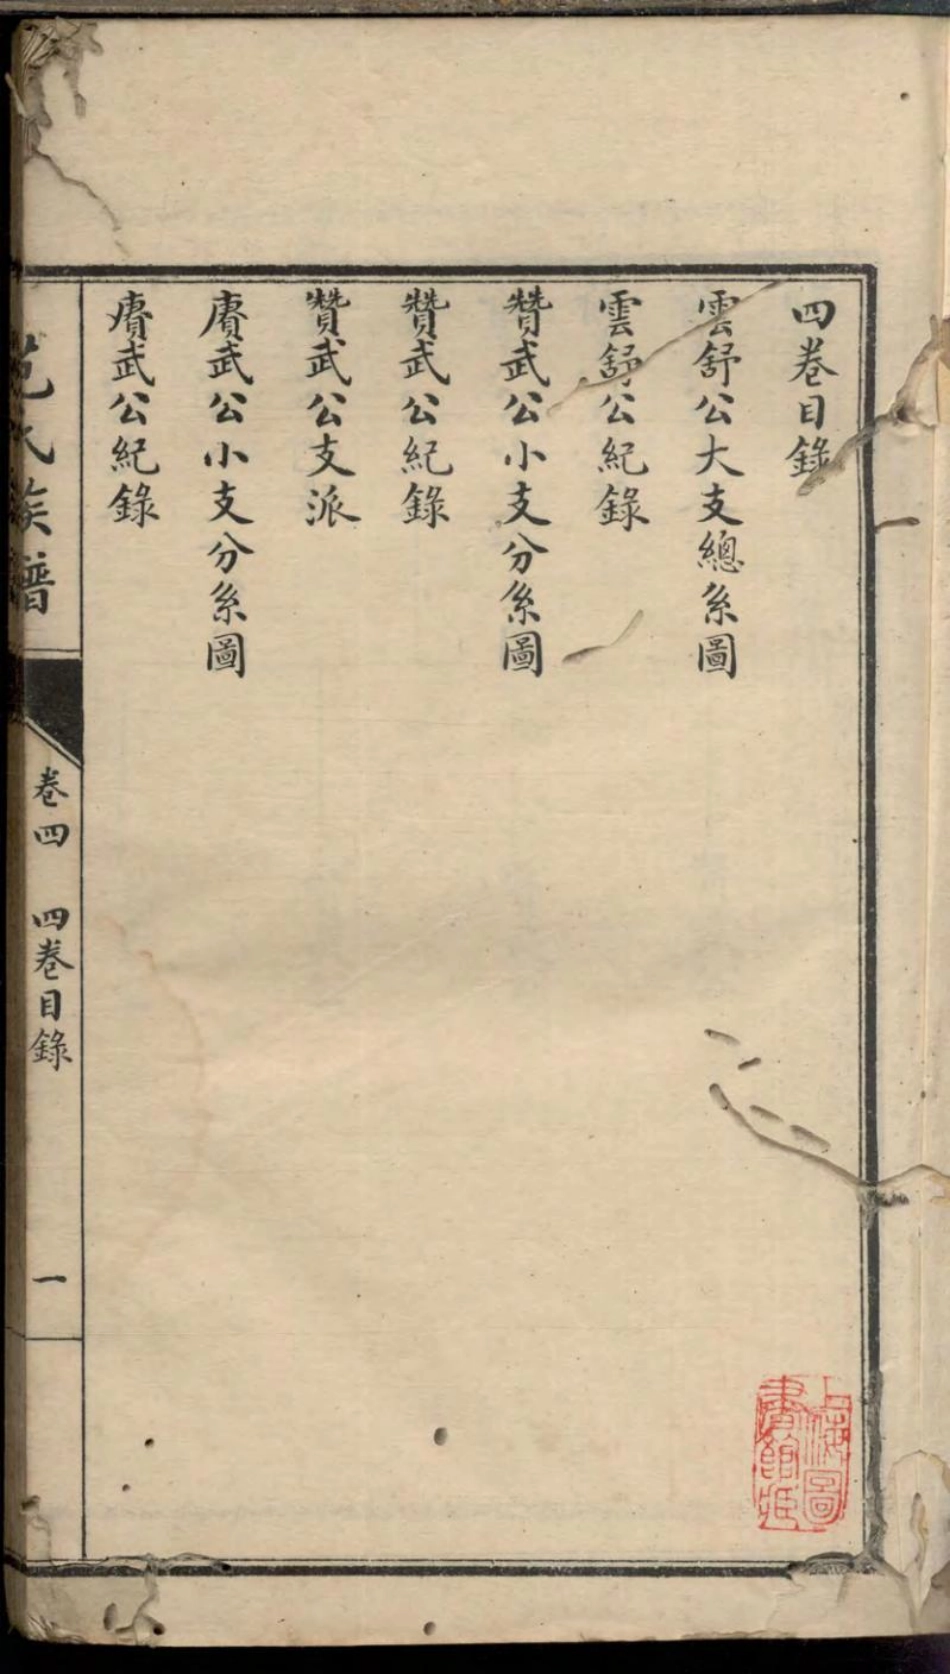 四卷目錄
雲舒公大支總系圖
雲舒公紀錄
贊武公小支分系圖
贊武公紀錄
贊武公支派
賡武公小支分系圖
賡武公紀錄
范氏族譜
卷四 四卷目錄
一
上海圖書館藏